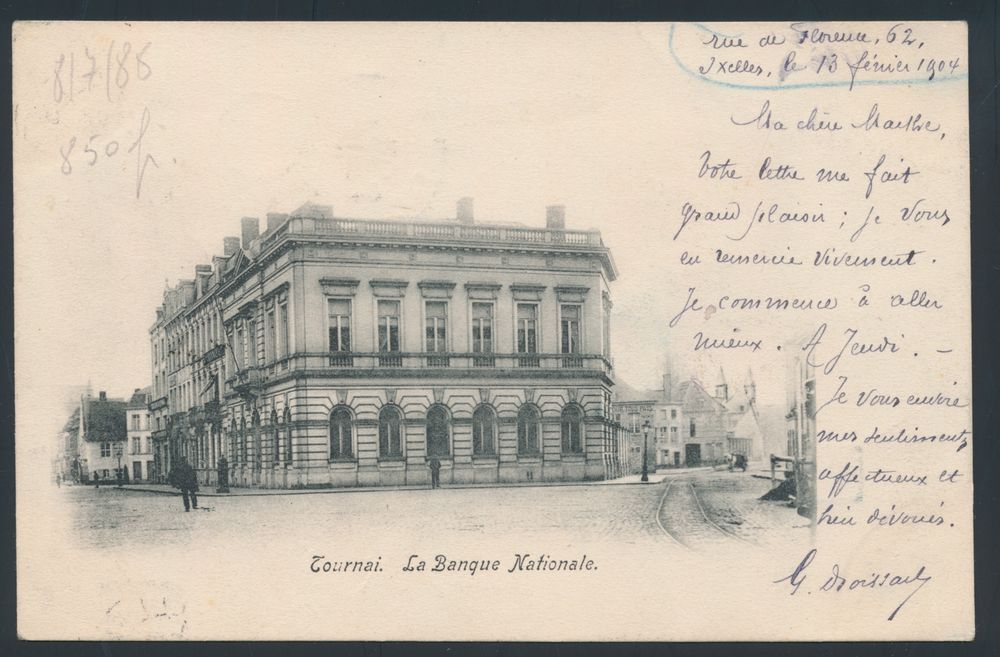 8/7/86
850 f.
rue de Florence, 62,
Ixelles, le 13 février 1904
Ma chère Marthe,
Votre lettre me fait
grand plaisir ; je vous
en remercie vivement.
Je commence à aller
mieux. A Jeudi. —
Je vous envoie
mes sentiments
affectueux et
bien dévoués.
G.
Tournai. La Banque Nationale.